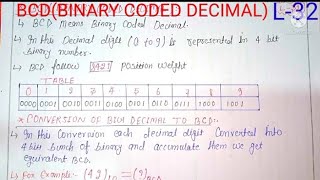 BCD(BINARY CODED DECIMAL) L-32
↳ BCD Means Binary Coded Decimal.
↳ In this Decimal digit (0 to 9) is represented in 4 bit
binary number.
↳ BCD follow 8421 position weight
TABLE
0 1 2 3 4 5 6 7 8 9
0000 0001 0010 0011 0100 0101 0110 0111 1000 1001
* CONVERSION OF DECIMAL TO BCD:-
↳ In this Conversion each decimal digit Converted into
4 bit bunch of binary and accumulate them we get
equivalent BCD.
↳ For Example:- (42)10 = (?)BCD